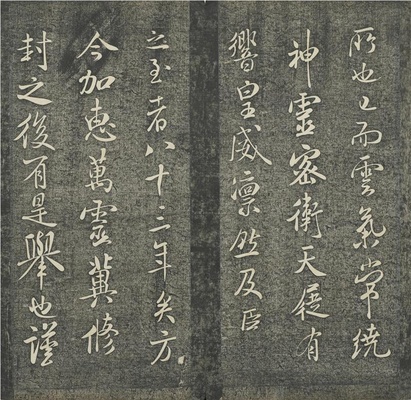 所也上而雲氣常繞
神靈密衛天侹有
響皇威凛然及臣
之至者八十三年矣方
今加惠萬靈冀修
封之後有是舉也謹